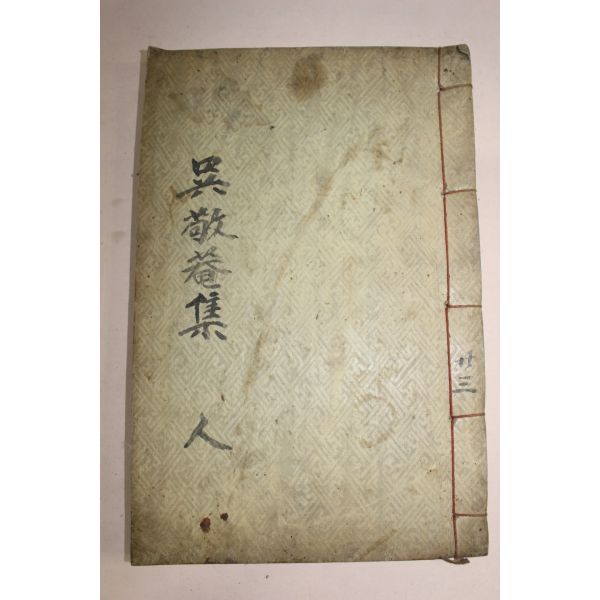 吳敬菴集 人
廿三